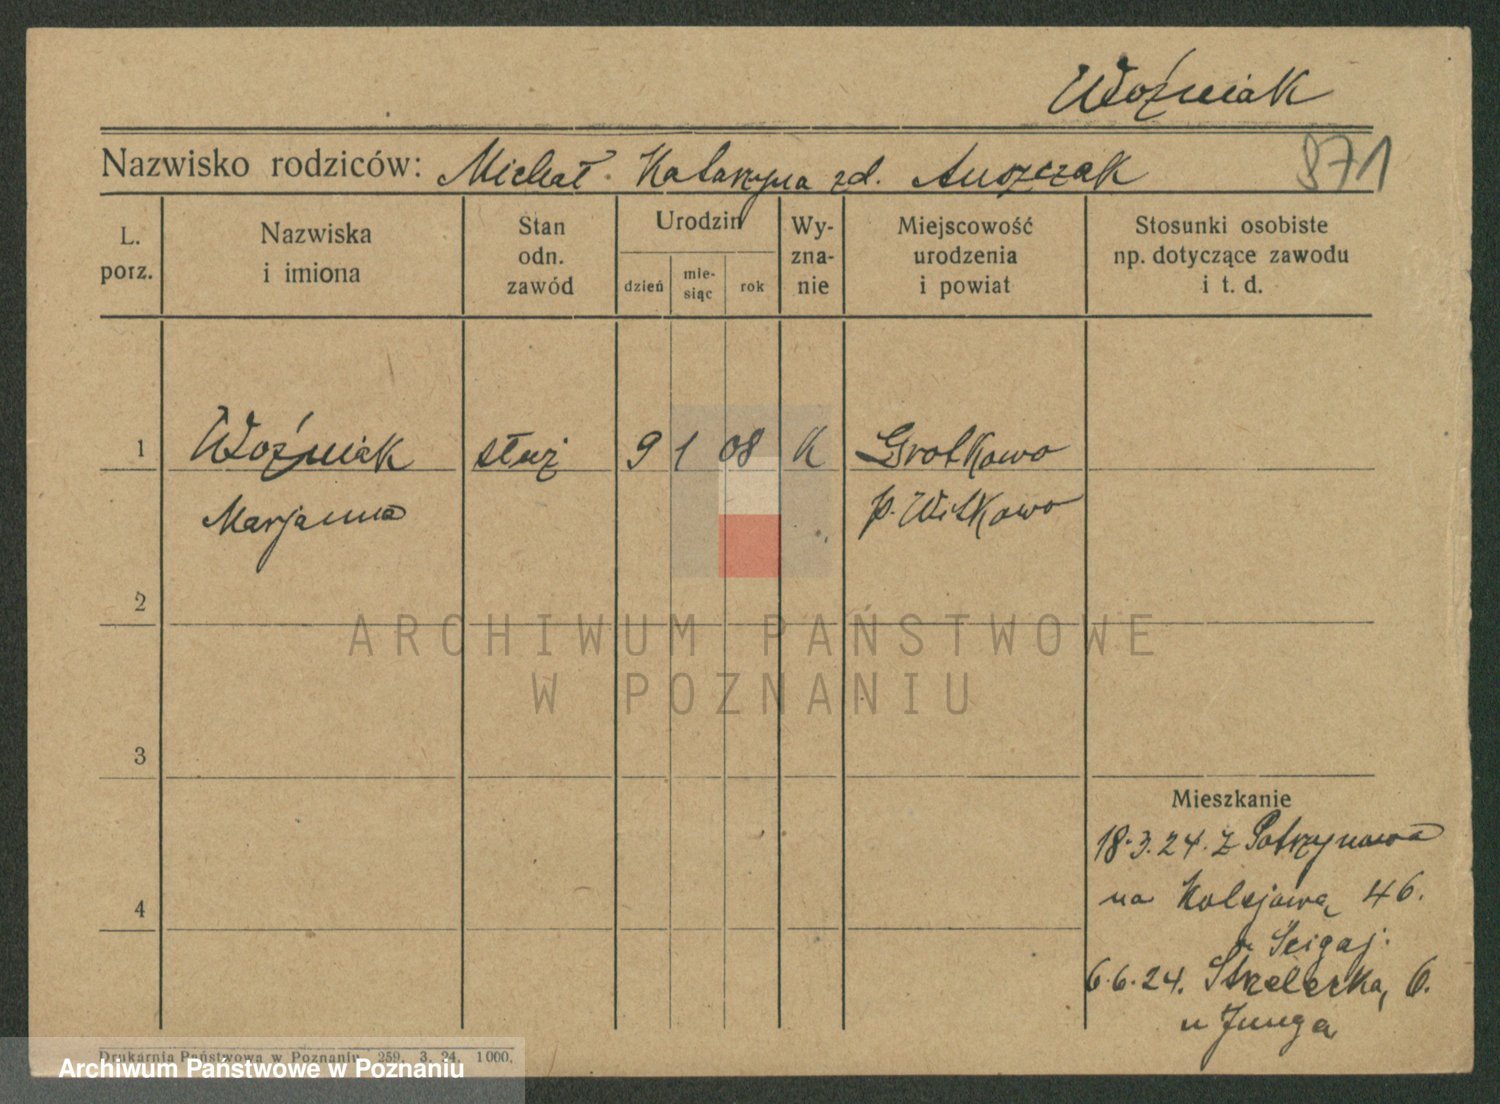 Woźniak
Nazwisko rodziców: Michał Katarzyna zd. Auszczak
871
L. porz.
Nazwiska i imiona
Stan odn. zawód
Urodzin
dzień
mie-siąc
rok
Wy-zna-nie
Miejscowość urodzenia i powiat
Stosunki osobiste np. dotyczące zawodu i t. d.
1 Woźniak służ 9 1 08 K Grotkowo
Marjanna p. Witkowo
2
ARCHIWUM PAŃSTWOWE
W POZNANIU
3
Mieszkanie
18.3.24. z Potrzynowa
na Kolejową 46.
4
u Scigaj.
6.6.24. Strzelecka, 6.
u Junga
Drukarnia Państwowa w Poznaniu 259. 3. 24. 1000.
Archiwum Państwowe w Poznaniu